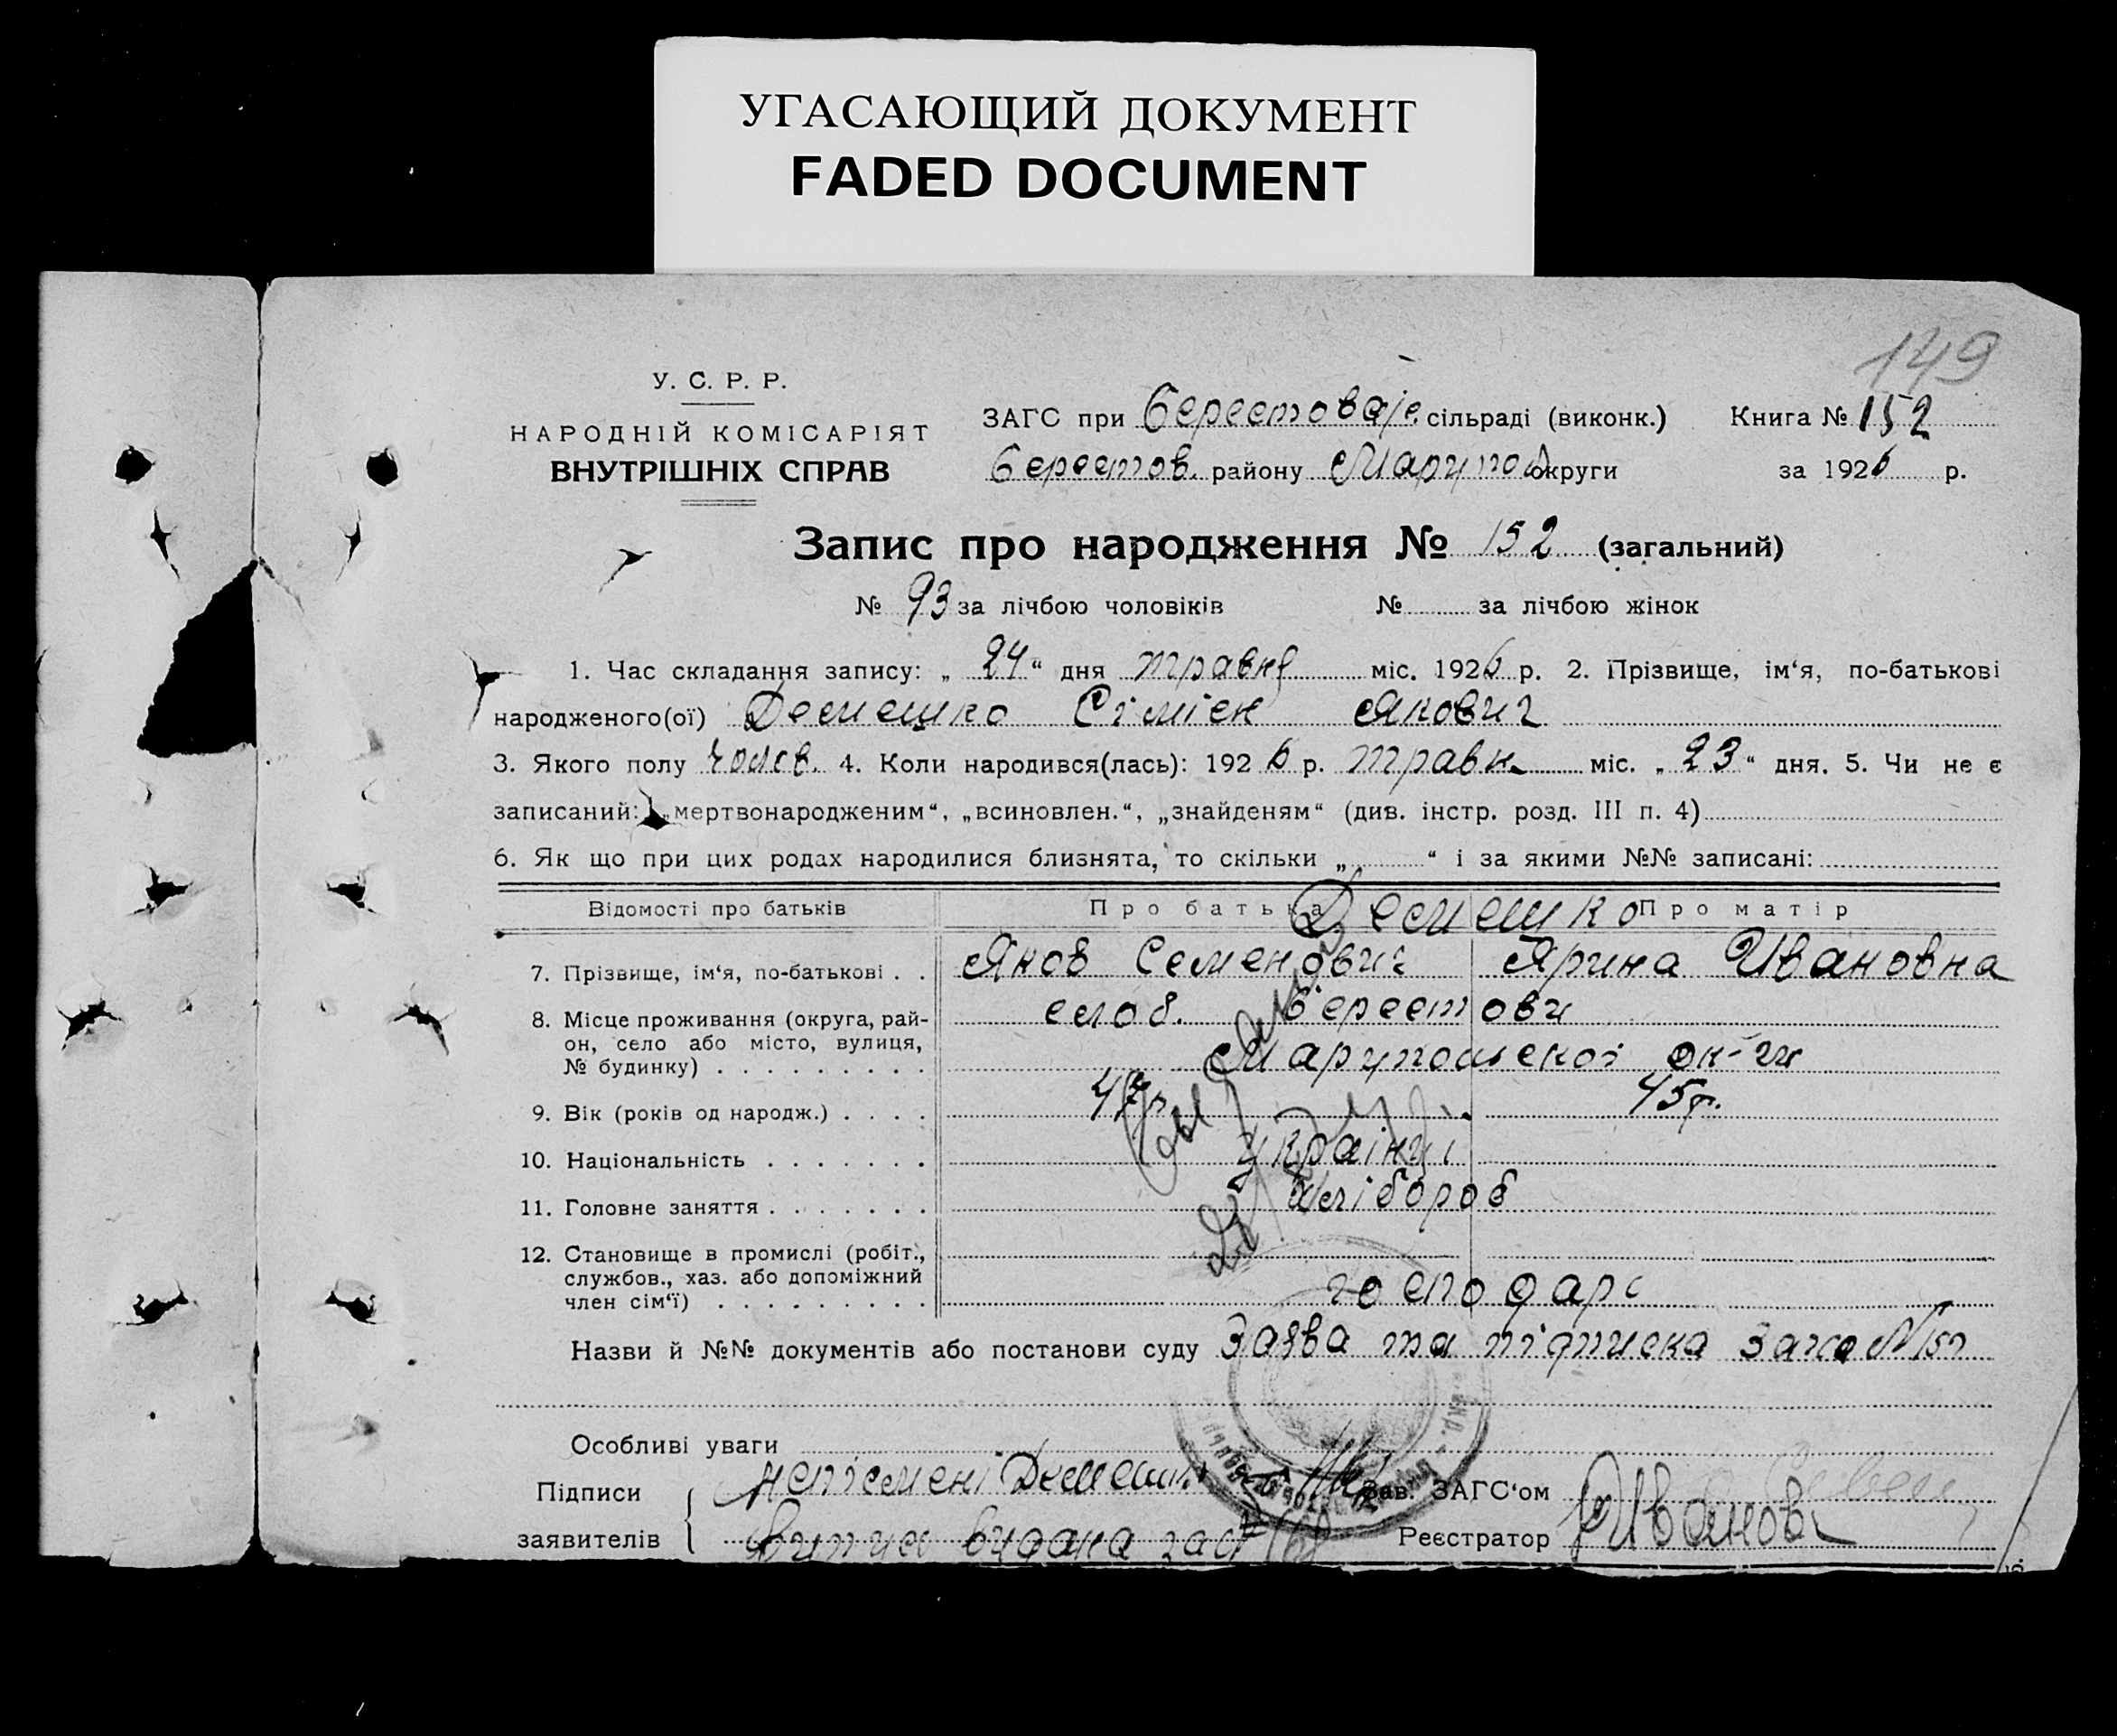 УГАСАЮЩИЙ ДОКУМЕНТ
FADED DOCUMENT
149
У. С. Р. Р.
НАРОДНІЙ КОМІСАРІЯТ
ВНУТРІШНІХ СПРАВ
ЗАГС при сільраді (виконк.) Книга № 152
Берестов. району Марупол округи за 1926 р.
Запис про народження № 152 (загальний)
№ 93 за лічбою чоловіків № за лічбою жінок
1. Час складання запису: „ 24 “ дня травня міс. 1926 р. 2. Прізвище, ім‘я, по-батькові
народженого(ої) Демешко Сімієн Якович
3. Якого полу чолов. 4. Коли народився(лась): 1926 р. травн. міс. „ 23 “ дня. 5. Чи не є
записаний: „мертвонародженим“, „всиновлен.“, „знайденям“ (див. інстр. розд. III п. 4)
6. Як що при цих родах народилися близнята, то скільки „ “ і за якими №№ записані:
Відомості про батьків Про батька Про матір
Демешко
7. Прізвище, ім‘я, по-батькові . . Яков Семенович Ярина Ивановна
8. Місце проживання (округа, рай-
он, село або місто, вулиця,
№ будинку) . . . . . . . . .
слоб. Берестови
Марупольскоі ок-ги
9. Вік (років од народж.) . . . . 47р. 45р.
10. Національність . . . . . . . Українці
11. Головне заняття . . . . . . . хлібороб
12. Становище в промислі (робіт.,
службов., хаз. або допоміжний
член сім‘ї) . . . . . . . . .
господарі
Назви й №№ документів або постанови суду Заява та підписка
Особливі уваги
Підписи заявителів
неписмені Демешко
видана
Зав. ЗАГС‘ом
Реєстратор Иванов